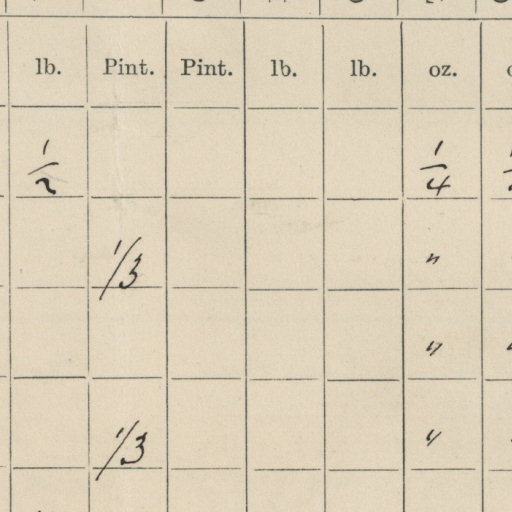 lb. Pint. Pint. lb. lb. oz.
1/2 1/4
1/3 "
"
1/3 "